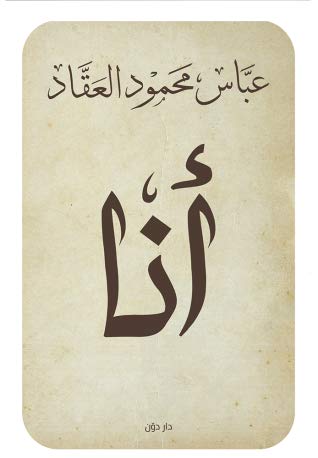 عبَّاس محمود العقَّاد
أنا
دار دوّن